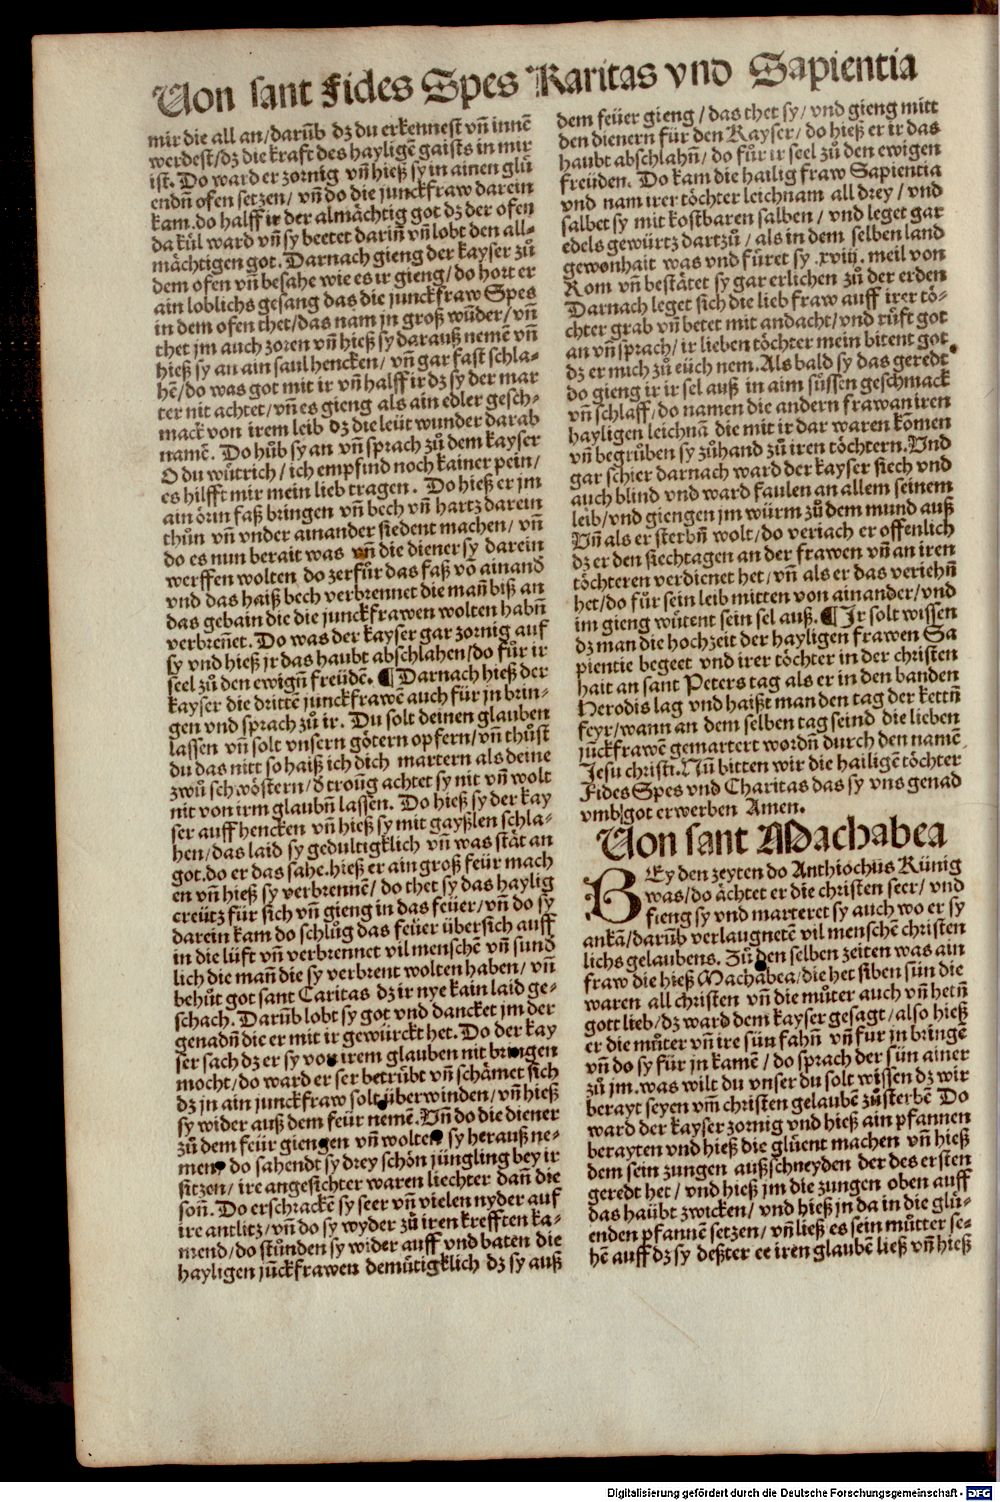 Von sant Fides Spes Karitas vnd Sapientia
mir die all an/darūb dz du erkennest vñ innē
werdest/dz die kraft des hayligē gaists in mir
ist. Do ward er zornig vñ hieß sy in ainen glů
endñ ofen setzen/ vñ do die junckfraw darein
kam.do halff ir der almächtig got dz der ofen
da kůl ward vñ sy beetet dariñ vñ lobt den all⸗
mächtigen got. Darnach gieng der kayser zů
dem ofen vñ besahe wie es ir gieng/do hort er
ain loblichs gesang das die junckfraw Spes
in dem ofen thet/das nam jn groß wūder/vñ
thet jm auch zoren vñ hieß sy darauß nemē vñ
hieß sy an ain saul hencken/ vñ gar fast schla⸗
hē/do was got mit ir vñ halff ir dz sy der mar
ter nit achtet/vñ es gieng als ain edler gesch⸗
mack von irem leib dz die leüt wunder darab
namē. Do hůb sy an vñ sprach zů dem kayser
O du wůtrich/ich empfind noch kainer pein/
es hilfft mir mein lieb tragen. Do hieß er jm
ain örin faß bringen vñ bech vñ hartz darein
thůn vñ vnder ainander siedent machen/ vñ
do es nun berait was vñ die diener sy darein
werffen wolten do zerfůr das faß vō ainand
vnd das haiß bech verbrennet die mañ biß an
das gebain die die junckfrawen wolten habñ
verbreñet. Do was der kayser gar zornig auf
sy vnd hieß jr das haubt abschlahen/do fůr ir
seel zů den ewigñ freüdē. ¶ Darnach hieß der
kayser die drittē junckfrawē auch für jn brin⸗
gen vnd sprach zů ir. Du solt deinen glauben
lassen vñ solt vnsern götern opfern/vñ thůst
du das nitt so haiß ich dich martern als deine
zwů schwöstern/ď troüg achtet sy nit vñ wolt
nit von irm glaubñ lassen. Do hieß sy der kay
ser auff hencken vñ hieß sy mit gayßlen schla⸗
hen/das laid sy gedultigklich vñ was stät an
got.do er das sahe.hieß er ain groß feür mach
en vñ hieß sy verbrennē/do thet sy das haylig
creütz für sich vñ gieng in das feüer/vñ do sy
darein kam do schlůg das feüer übersich auff
in die lüft vñ verbrennet vil menschē vñ sund
lich die mañ die sy verbrent wolten haben/ vñ
behůt got sant Caritas dz ir nye kain laid ge⸗
schach. Darūb lobt sy got vnd dancket jm der
genadñ die er mit ir gewürckt het. Do der kay
ser sach dz er sy von irem glauben nit bringen
mocht/do ward er ser betrůbt vñ schämet sich
dz jn ain junckfraw solt überwinden/vñ hieß
sy wider auß dem feür nemē. Vñ do die diener
zů dem feür giengen vñ wolten sy herauß ne⸗
men/ do sahendt sy drey schön jüngling bey ir
sitzen/ ire angesichter waren liechter dañ die
soñ. Do erschrackē sy seer vñ vielen nyder auf
ire antlitz/vñ do sy wyder zů iren krefften ka⸗
mend/do stůnden sy wider auff vnd baten die
hayligen jūckfrawen demůtigklich dz sy auß
dem feüer gieng/das thet sy/vnd gieng mitt
den dienern für den Kayser/do hieß er ir das
haubt abschlahñ/do fůr ir seel zů den ewigen
freüden. Do kam die hailig fraw Sapientia
vnd nam irer töchter leichnam all drey/vnd
salbet sy mit kostbaren salben/ vnd leget gar
edels gewürtz dartzů/als in dem selben land
gewonhait was vnd fůret sy .xviij. meil von
Rom vñ bestätet sy gar erlichen zů der erden
Darnach leget sich die lieb fraw auff irer tö⸗
chter grab vñ betet mit andacht/vnd růft got
an vñ sprach/ir lieben töchter mein bitent got
dz er mich zů eüch nem. Als bald sy das geredt
do gieng ir ir sel auß in aim sůssen geschmack
vñ schlaff/do namen die andern frawan iren
hayligen leichnā die mit ir dar waren kōmen
vñ begrůben sy zůhand zů iren töchtern. Vnd
gar schier darnach ward der kayser siech vnd
auch blind vnd ward faulen an allem seinem
leib/vnd giengen jm würm zů dem mund auß
Vñ als er sterbñ wolt/do veriach er offenlich
dz er den siechtagen an der frawen vñ an iren
töchteren verdienet het/vñ als er das veriehñ
het/do fůr sein leib mitten von ainander/vnd
im gieng wůtent sein sel auß. ¶ Ir solt wissen
dz man die hochzeit der hayligen frawen Sa
pientie begeet vnd irer töchter in der christen
hait an sant Peters tag als er in den banden
Herodis lag vnd haißt man den tag der kettñ
feyr/wann an dem selben tag seind die lieben
jūckfrawē gemartert wordñ durch den namē
Jesu christi. Nū bitten wir die hailigē töchter
Fides Spes vnd Charitas das sy vns genad
vmb got erwerben Amen.
Von sant Machabea
BEy den zeyten do Anthiochus Künig
was/do ächtet er die christen seer/ vnd
fieng sy vnd marteret sy auch wo er sy
ankā/darūb verlaugnetē vil menschē christen
lichs gelaubens. Zů den selben zeiten was ain
fraw die hieß Machabea/die het siben sün die
waren all christen vñ die můter auch vñ hetñ
gott lieb/dz ward dem kayser gesagt/also hieß
er die můter vñ ire sün fahñ vñ für in bringē
vñ do sy für jn kamē/ do sprach der sün ainer
zů jm.was wilt du vnser du solt wissen dz wir
berayt seyen vm̄ christen gelaubē zů sterbē Do
ward der kayser zornig vnd hieß ain pfannen
berayten vnd hieß die glüent machen vñ hieß
dem sein zungen außschneyden der des ersten
geredt het/ vnd hieß jm die zungen oben auff
das haübt zwicken/ vnd hieß jn da in die glů⸗
enden pfannē setzen/ vñ ließ es sein můtter se⸗
hē auff dz sy deßter ee iren glaubē ließ vñ hieß
Digitalisierung gefördert durch die Deutsche Forschungsgemeinschaft - DFG